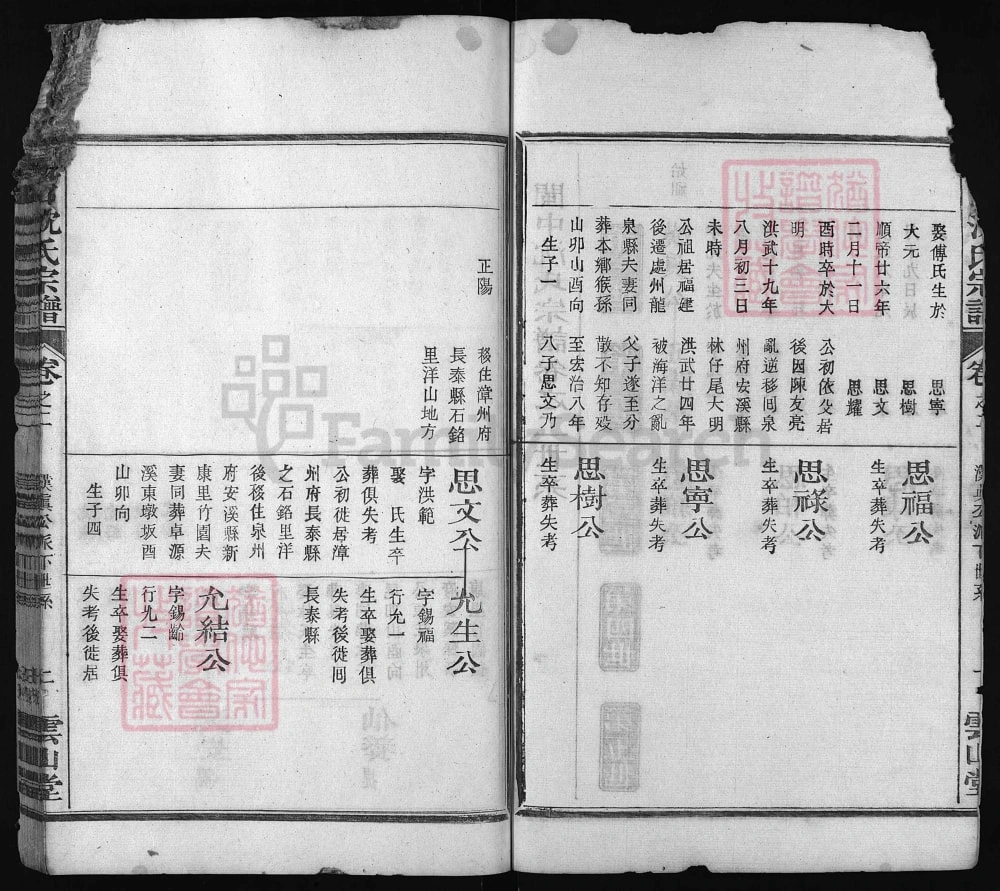 娶傅氏生於
大元
順帝廿六年
二月十一日
酉時卒於大
明
洪武十九年
八月初三日
未時
公祖居福建
後遷處州龍
泉縣夫妻同
葬本鄉猴孫
山卯山酉向
生子一
思寧
思樹
思文
思耀
公初依父居
後因陳友亮
亂逆移囘泉
州府安溪縣
林仔尾大明
洪武廿四年
被海洋之亂
父子遂至分
散不知存歿
至宏治八年
八子思文乃
思福公
生卒葬失考
思祿公
生卒葬失考
思寧公
生卒葬失考
思樹公
生卒葬失考
正陽
移住漳州府
長泰縣石銘
里洋山地方
思文公
字洪範
娶 氏生卒
葬俱失考
公初徙居漳
州府長泰縣
之石銘里洋
後移住泉州
府安溪縣新
康里竹園夫
妻同葬卓源
溪東墩坂酉
山卯向
生子四
允生公
字錫福
行允一
生卒娶葬俱
失考後徙囘
長泰縣
允結公
字錫齡
行允二
生卒娶葬俱
失考後徙居
沈氏宗譜
卷之一
雲山堂
雲山堂
FamilySearch